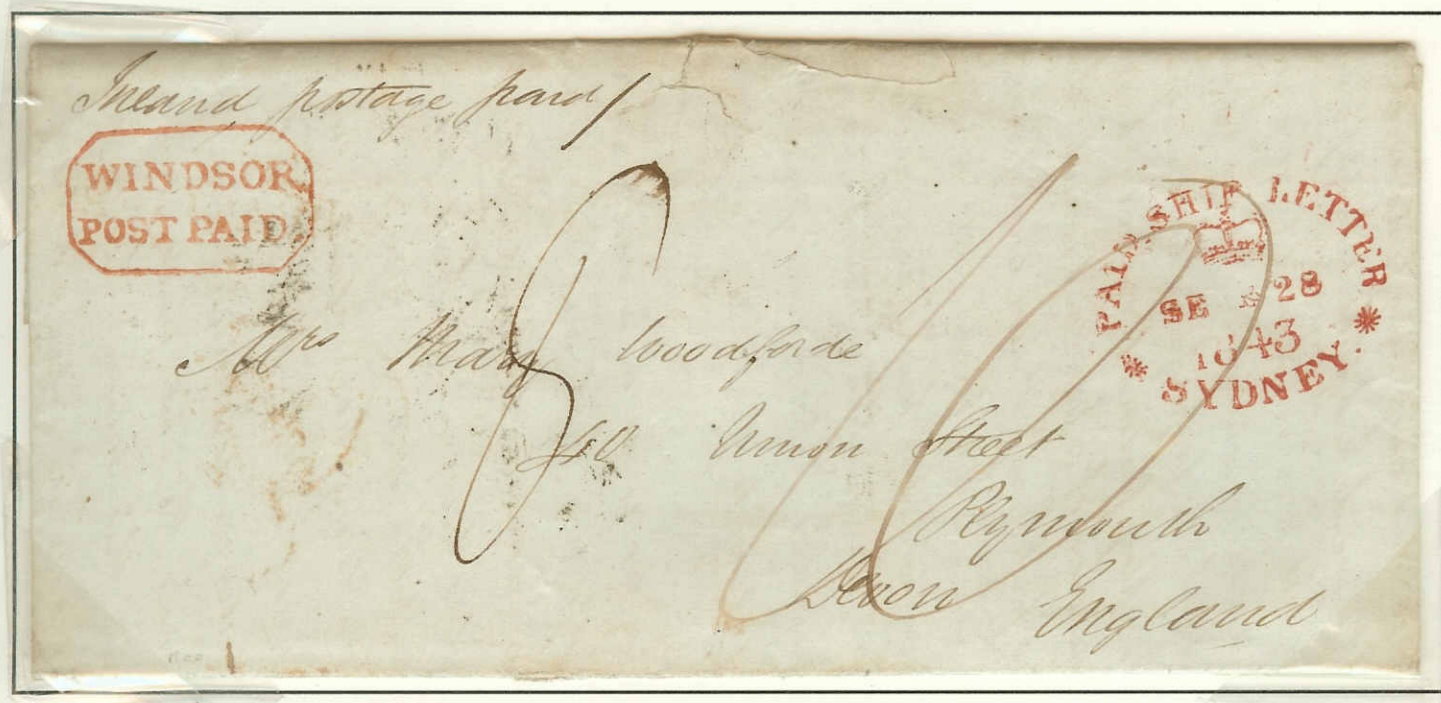 Inland postage paid/
WINDSOR
POST PAID.
PAID SHIP LETTER
SE 28
1843
SYDNEY.
8
10
Mrs Mary Woodforde
40 Union Street
Plymouth
Devon England